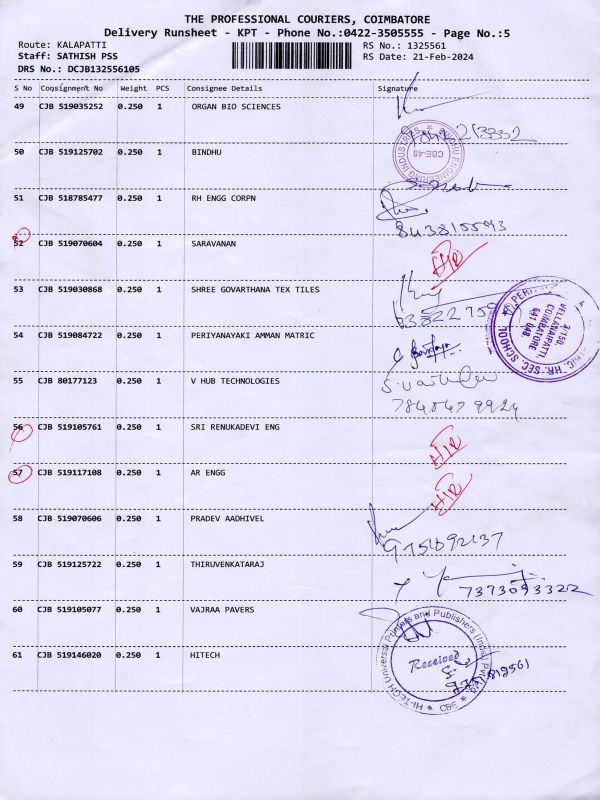 THE PROFESSIONAL COURIERS, COIMBATORE
Delivery Runsheet - KPT - Phone No.:0422-3505555 - Page No.:5
Route: KALAPATTI
RS No.: 1325561
Staff: SATHISH PSS
RS Date: 21-Feb-2024
DRS No.: DCJB132556105
S No Consignment No Weight PCS Consignee Details Signature
49 CJB 519035252 0.250 1 ORGAN BIO SCIENCES
50 CJB 519125702 0.250 1 BINDHU
BINDHU ENGINEERING INDUSTRIES ★ CBE-48
51 CJB 518785477 0.250 1 RH ENGG CORPN
8438155093
52 CJB 519070604 0.250 1 SARAVANAN
53 CJB 519030868 0.250 1 SHREE GOVARTHANA TEX TILES
54 CJB 519084722 0.250 1 PERIYANAYAKI AMMAN MATRIC
HR. SEC. SCHOOL
3/150,
VELLANAIPATTI,
COIMBATORE
641 048
55 CJB 80177123 0.250 1 V HUB TECHNOLOGIES
56 CJB 519105761 0.250 1 SRI RENUKADEVI ENG
57 CJB 519117108 0.250 1 AR ENGG
58 CJB 519070606 0.250 1 PRADEV AADHIVEL
9751092137
59 CJB 519125722 0.250 1 THIRUVENKATARAJ
7373093322
60 CJB 519105077 0.250 1 VAJRAA PAVERS
61 CJB 519146020 0.250 1 HITECH
HI-TECH Universal Printers and Publishers (India) Pvt Ltd ★ CBE ★
Received